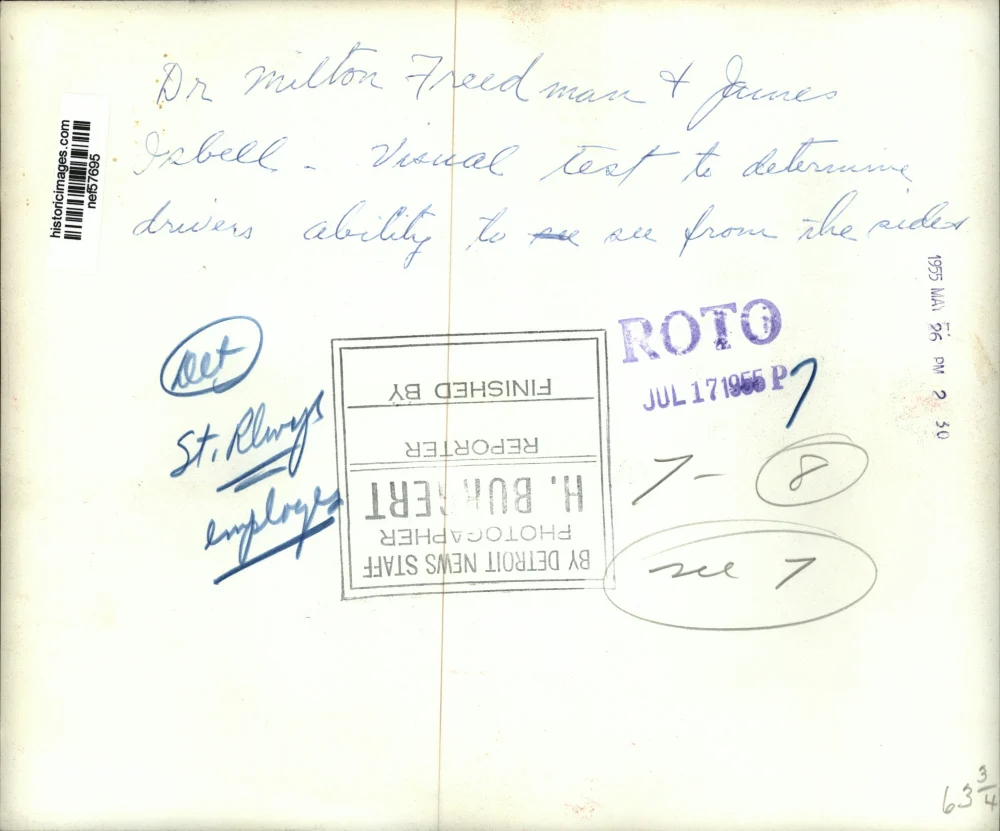 Dr Milton Freedman & James
Isbell - Visual test to determine
drivers ability to see see from the sides
historicimages.com
nef57695
1955 MAY 26 PM 2 30
Det
St. Rlways
employes
ROTO
JUL 17 1955 P
7
7 - 8
see 7
BY DETROIT NEWS STAFF
PHOTOGRAPHER
H.
REPORTER
FINISHED BY
63 3/4